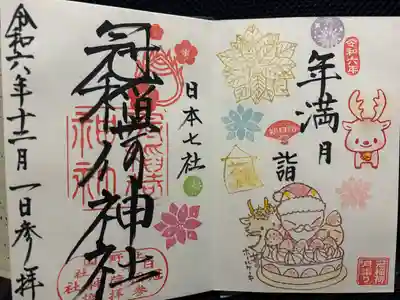 令和六年
年満月
詣
日本七社
冠稲荷神社
令和六年十二月一日参拝